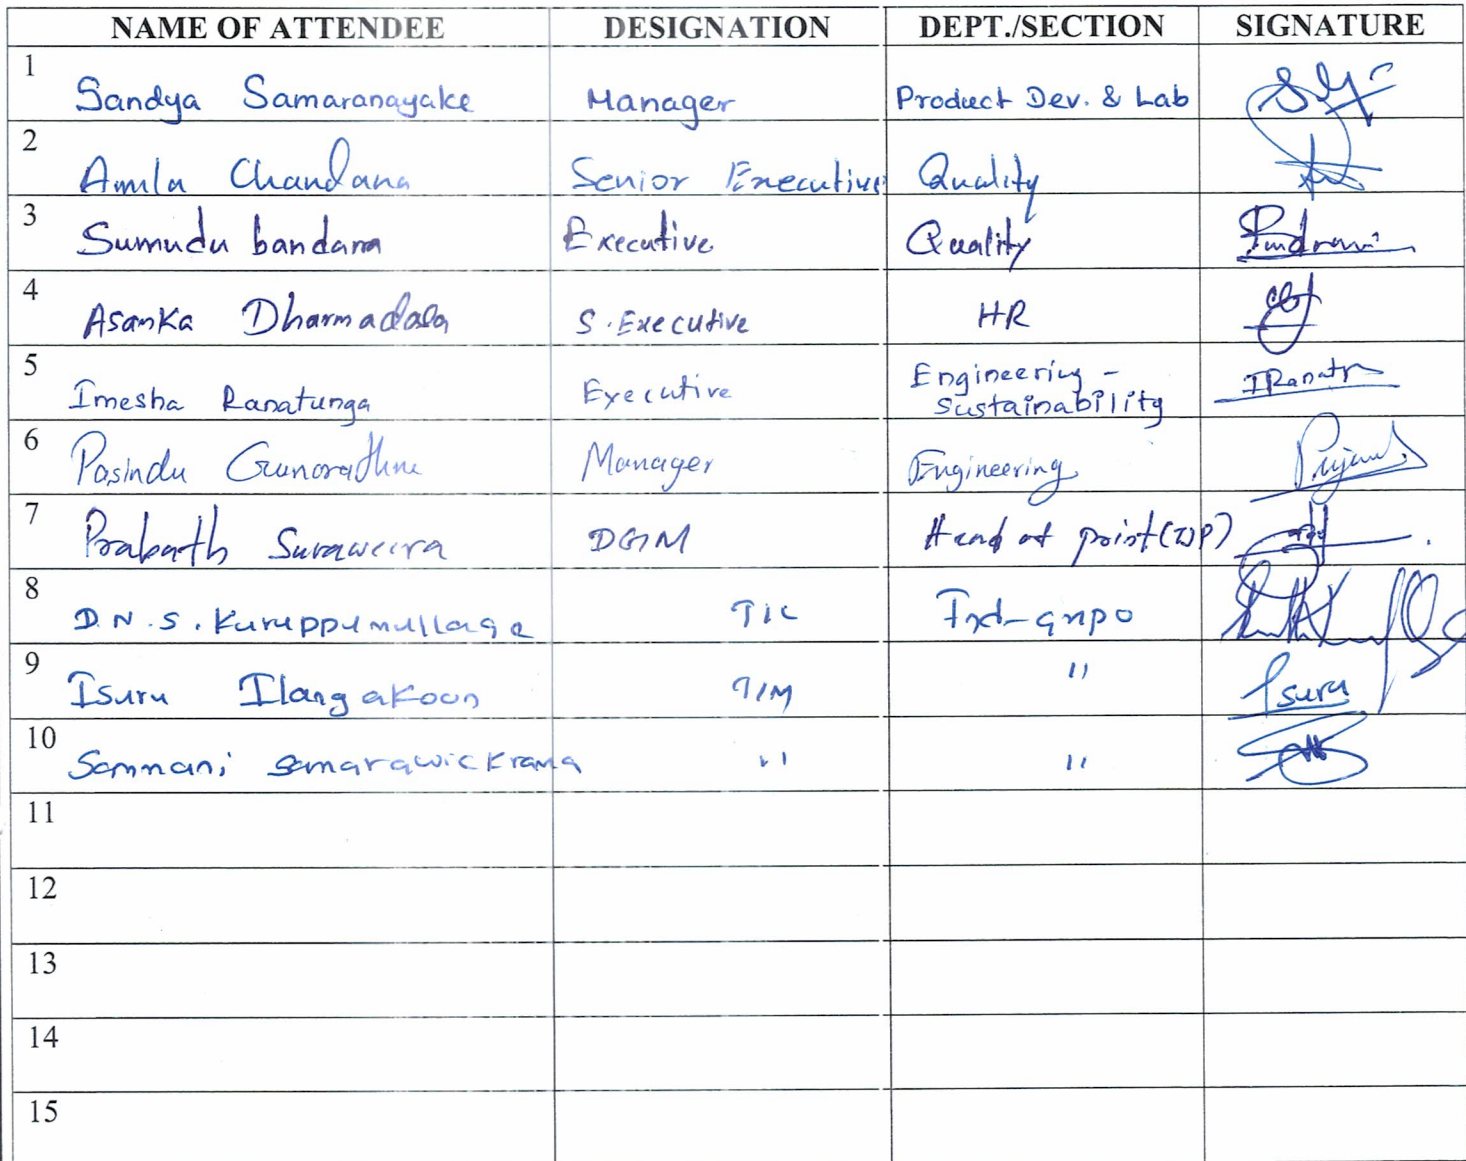 NAME OF ATTENDEE DESIGNATION DEPT./SECTION SIGNATURE
1 Sandya Samaranayake Manager Product Dev. & Lab
2 Amila Chandana Senior Executive Quality
3 Sumudu bandara Executive Quality
4 Asanka Dharmadasa S. Executive HR
5 Imesha Ranatunga Executive Engineering - IRanatn
Sustainability
6 Pasindu Gunarathne Manager Engineering
7 Prabath Suraweera DGM Head of point(WP)
8 D.N.S. Kuruppumullage
9 Isuru Ilangakoon T/M " Isuru
10 Sammani Samarawickrama " "
11
12
13
14
15